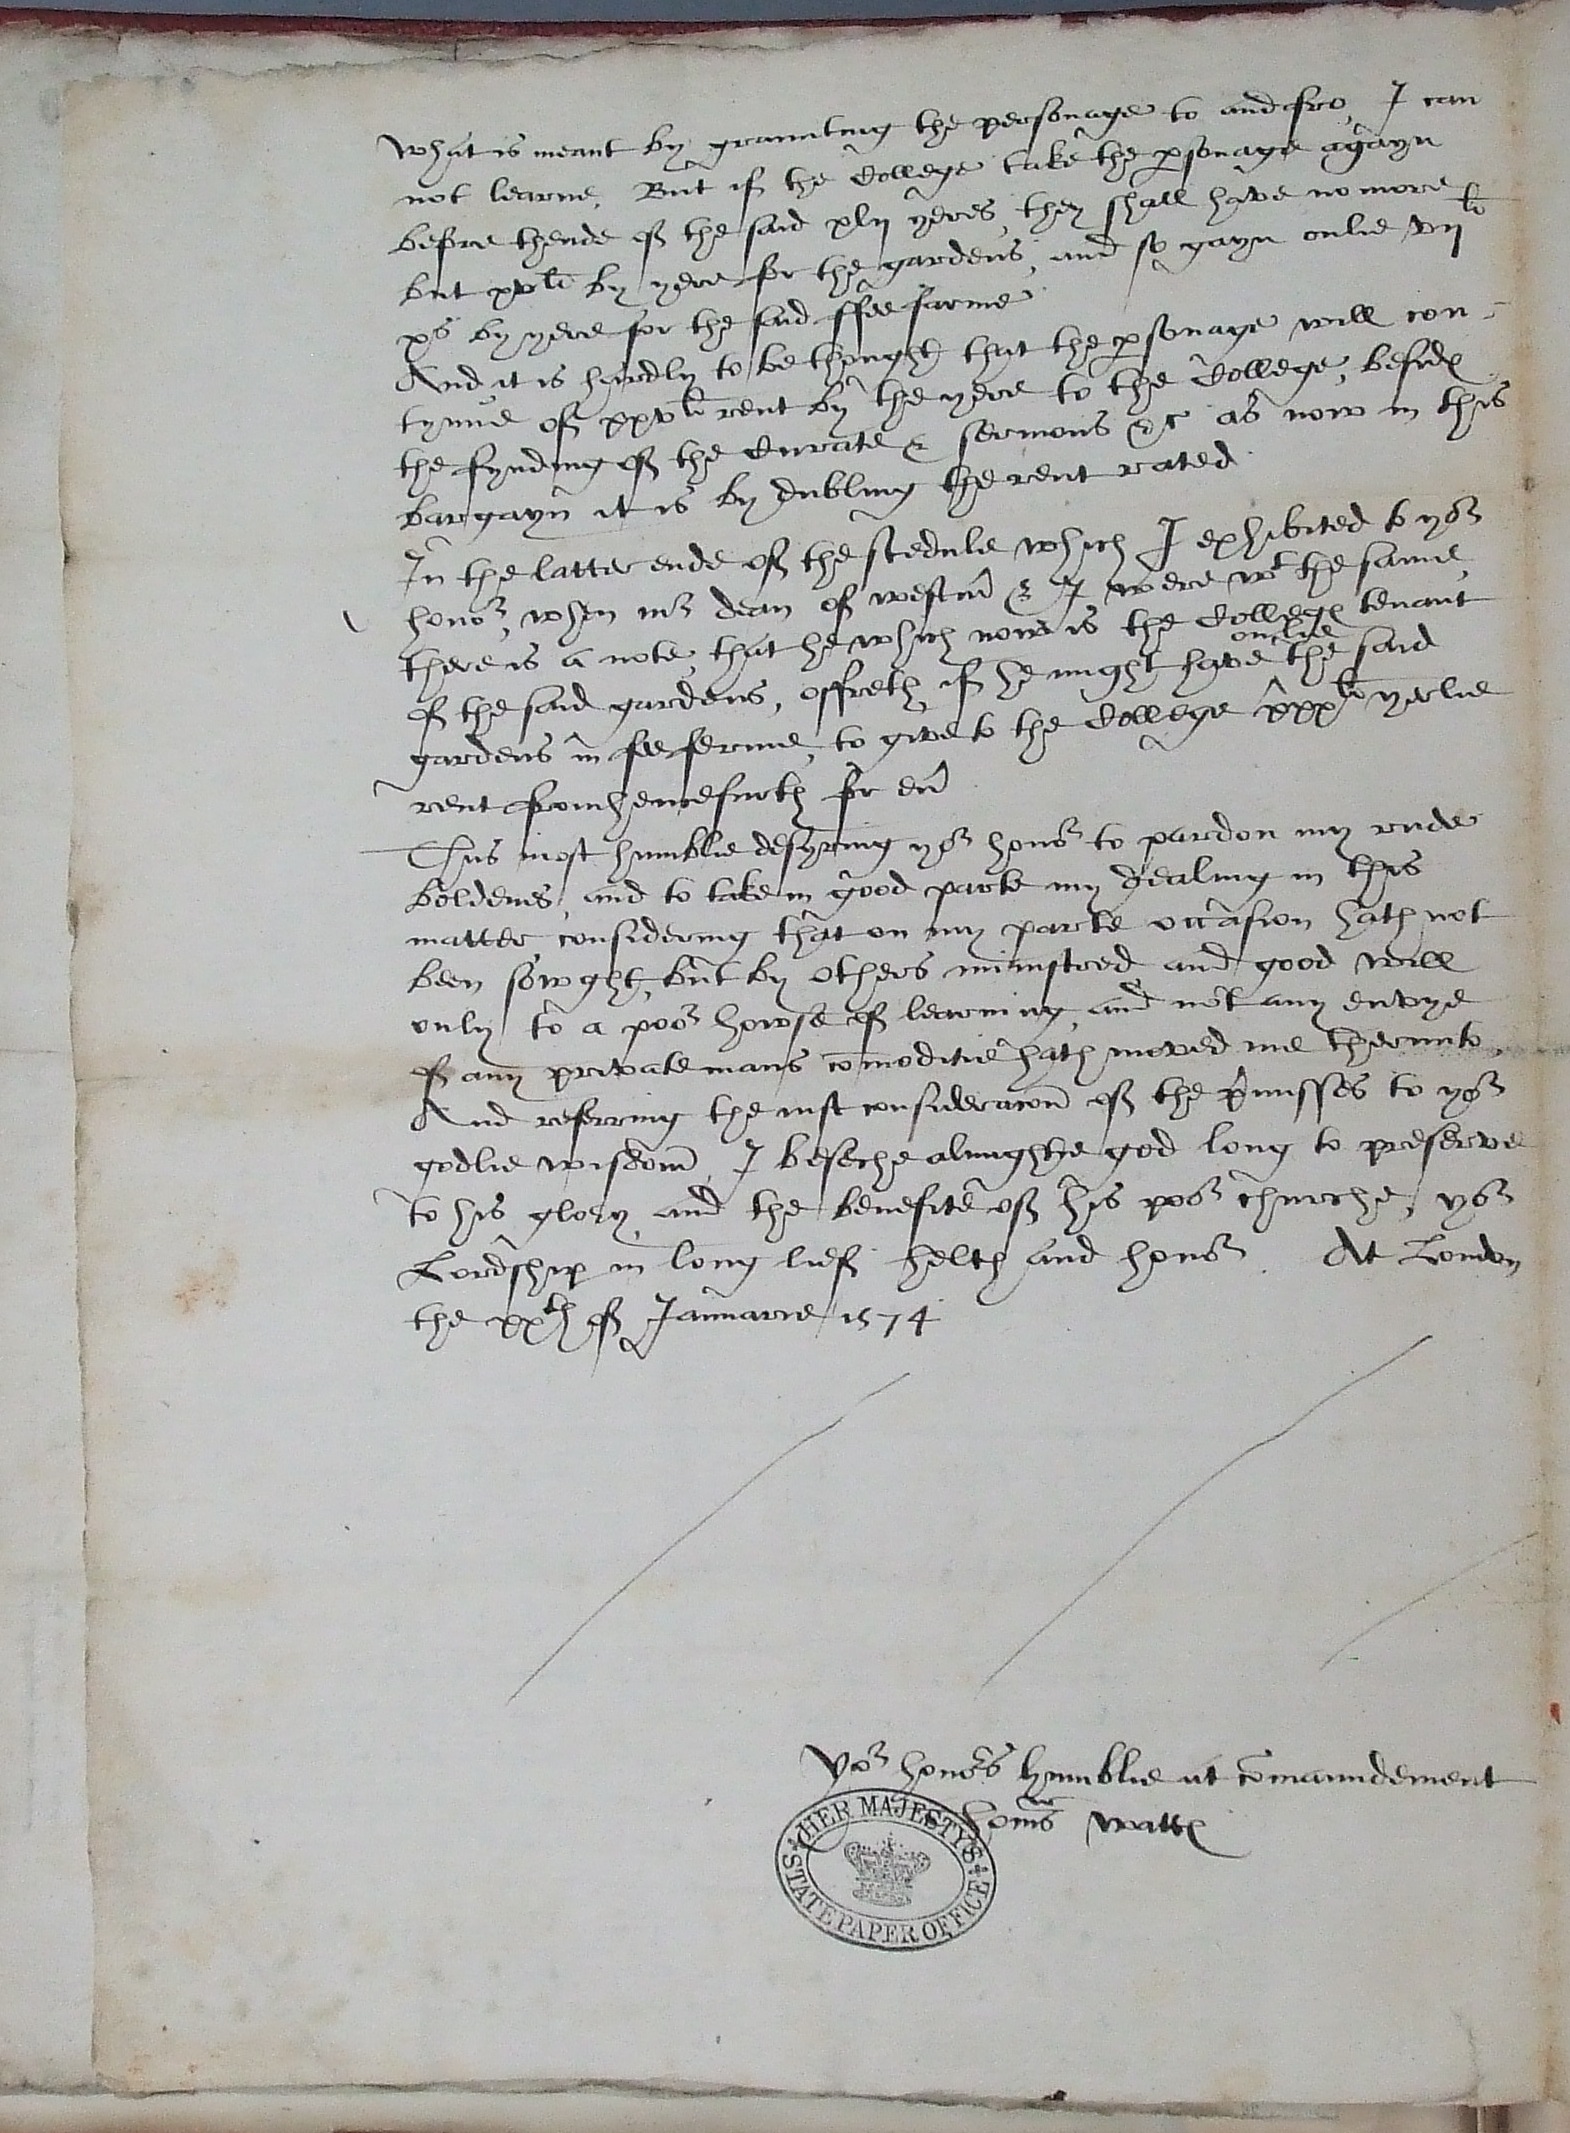 what is meant by graunting the personage to and fro, I can
not learne. But if the College take the psonage agayn
before thende of the said xlij yeres, they shall have no more
but xvli by yere for the gardens, and so gayn onlie vijli
xs by yere for the said ffee farme
And it is hardly to be thought that the psonage will con-
tynue of xxvli rent by the yere to the College, besides
the fynding of the Curate & sermons &c as now in this
bargayn it is by dubling the rent rated.
In the latter ende of the scedule which I exhibited to yor
honor, when mr dean of westm & I were wt the same,
there is a note, that he which now is the Colleges tenant
of the said gardens, offreth, if he might have onelie the said
gardens in fee ferme, to give to the College xxxli yerlie
rent from henceforth for eu
Thus most humblie desyring yor honor to pardon my rude
boldenes, and to take in good parte my dealing in this
matter considering that on my parte occasion hath not
been sowght, but by others ministred and good will
only to a poor howse of learning, and not any envye
of any private mans comoditie hath moved me therunto,
And referring the iust consideracon of the pmisses to yor
godlie wisedom, I beseche almightye god long to preserve
to his glory and the benefite of his poor churche, yor
Lordship in long lief helth and honor. At London
the xxth of Januarie 1574
Yor honors humblie at comaundement
Thoms Watts
HER MAJESTY'S
STATE PAPER OFFICE